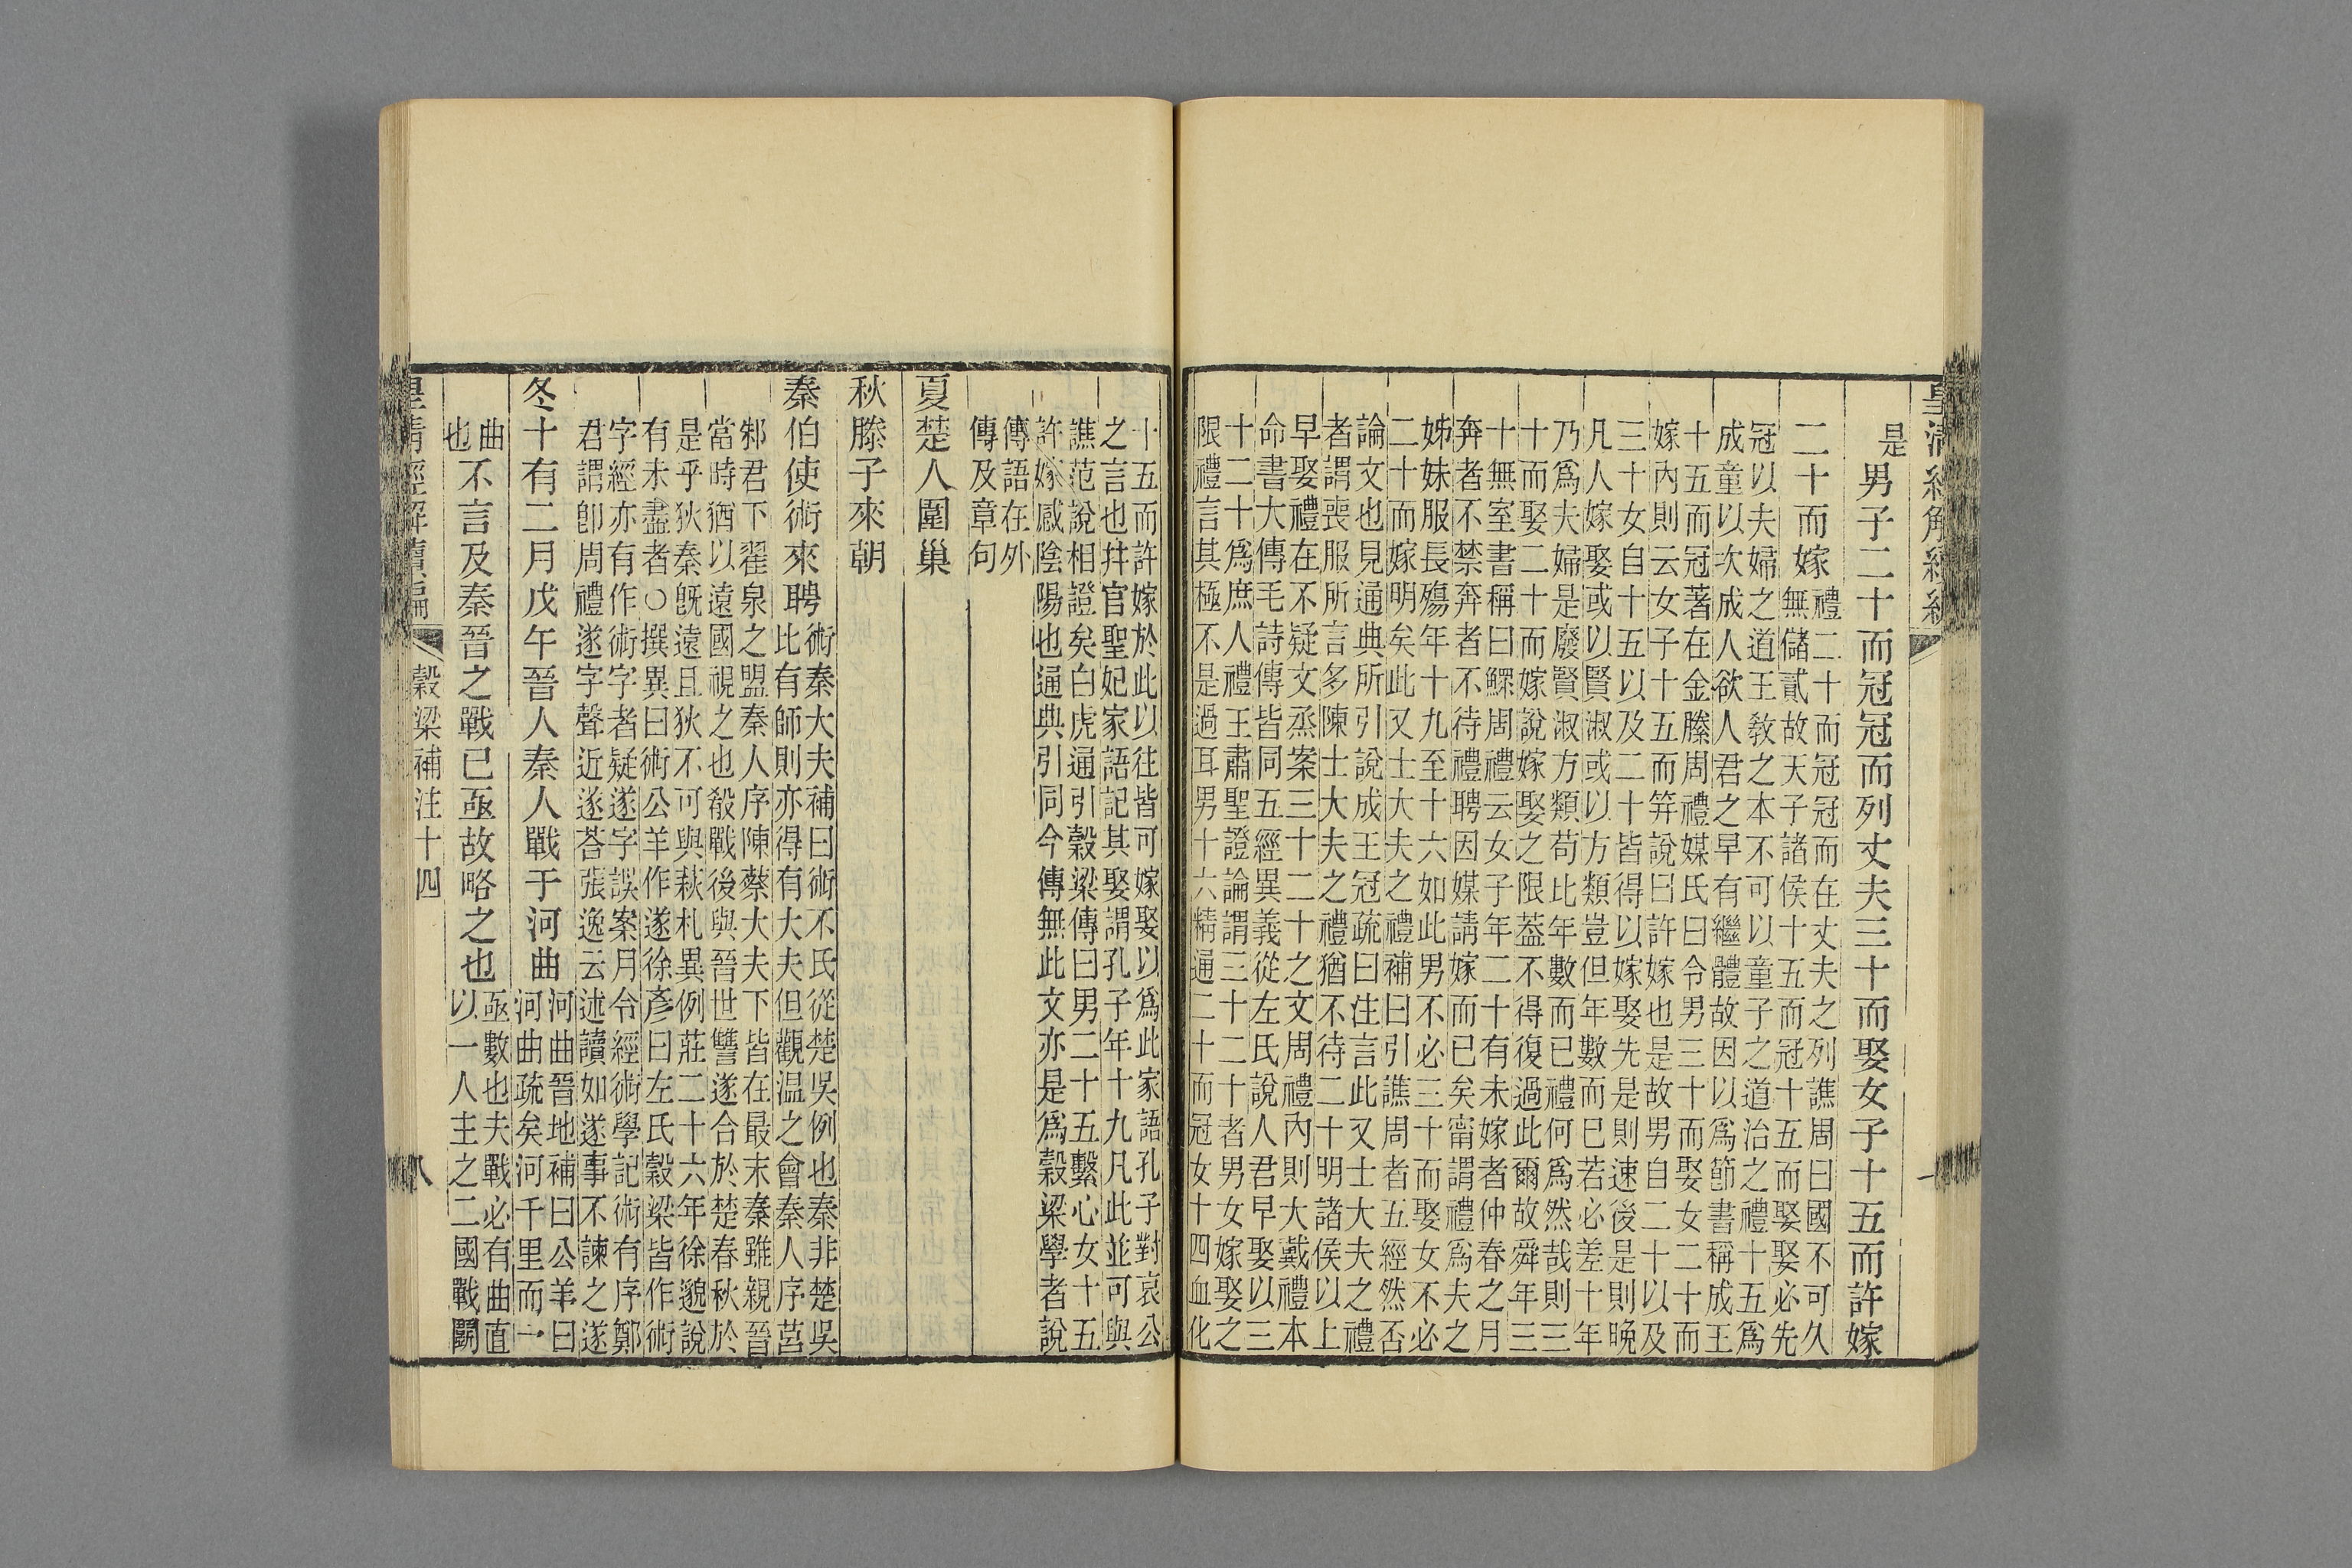 皇清經解續編
是男子二十而冠冠而列丈夫三十而娶女子十五而許嫁
二十而嫁禮二十而冠冠而在丈夫之列譙周曰國不可久
無儲貳故天子諸侯十五而冠十五而娶娶必先
冠以夫婦之道王教之本不可以童子之道治之禮十五爲
成童以次成人欲人君之早有繼體故因以爲節書稱成王
十五而冠著在金縢周禮媒氏曰令男三十而娶女二十而
嫁內則云女子十五而笄說曰許嫁也是故男自二十以及
三十女自十五以及二十皆得以嫁娶先是則速後是則晚
凡人嫁娶或以賢淑或以方類豈但年數而已若必差十年
乃爲夫婦是廢賢淑方類苟比年數而已禮何爲然哉則三
十而娶二十而嫁說嫁娶之限葢不得復過此爾故舜年三
十無室書稱曰鰥周禮云女子年二十有未嫁者仲春之月
奔者不禁奔者不待禮聘因媒請嫁而已矣甯謂禮爲夫之
姊妹服長殤年十九至十六如此男不必三十而娶女不必
二十而嫁明矣此又士大夫之禮補曰引譙周者五經然否
論文也見通典所引說成王冠疏曰注言此又士大夫之禮
者謂喪服所言多陳士大夫之禮猶不待二十明諸侯以上
早娶禮在不疑文烝案三十二十之文周禮內則大戴禮本
命書大傳毛詩傳皆同五經異義從左氏說人君早娶以三
十二十爲庶人禮王肅聖證論謂三十二十者男女嫁娶之
限禮言其極不是過耳男十六精通二十而冠女十四血化
十五而許嫁於此以往皆可嫁娶以爲此家語孔子對哀公
之言也幷官聖妃家語記其娶謂孔子年十九凡此並可與
譙范說相證矣白虎通引穀梁傳曰男二十五繫心女十五
許嫁感陰陽也通典引同今傳無此文亦是爲穀梁學者說
傳語在外
傳及章句
夏楚人圍巢
秋滕子來朝
秦伯使術來聘術秦大夫補曰術不氏從楚吳例也秦非楚吳
比有師則亦得有大夫但觀溫之會秦人序莒
邾君下翟泉之盟秦人序陳蔡大夫下皆在最末秦雖親晉
當時猶以遠國視之也殽戰後與晉世讐遂合於楚春秋於
是乎狄秦旣遠且狄不可與萩札異例莊二十六年徐邈說
有未盡者○撰異曰術公羊作遂徐彥曰左氏穀梁皆作術
字經亦有作術字者疑遂字誤案月令經術學記術有序鄭
君謂卽周禮遂字聲近遂荅張逸云述讀如遂事不諫之遂
冬十有二月戊午晉人秦人戰于河曲河曲晉地補曰公羊曰
河曲疏矣河千里而一
曲
也不言及秦晉之戰已亟故略之也亟數也夫戰必有曲直
以一人主之二國戰鬭
皇清經解續編 穀梁補注十四 八